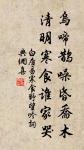 烏啼鵲噪昏喬木
清明寒食誰家哭
白居易寒食野望吟詞